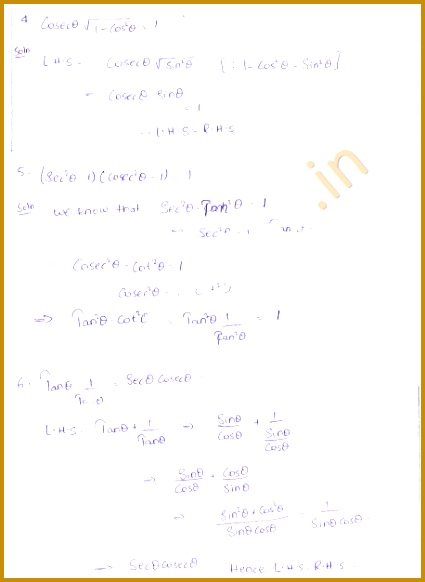 4 Cosecθ √1-Cos²θ = 1
Soln L.H.S - Cosecθ √Sin²θ {∵ 1-Cos²θ = Sin²θ}
= Cosecθ Sinθ
= 1
∴ L.H.S = R.H.S
5. (Sec²θ 1)(Cosec²θ-1) 1
Soln we know that Sec²θ-Tan²θ = 1
Sec²
Cosec²θ - Cot²θ = 1
Cosec²θ
⇒ Tan²θ Cot²θ = Tan²θ 1/Tan²θ = 1
6. Tanθ 1/Tanθ = Secθ Cosecθ
L.H.S - Tanθ + 1/Tanθ ⇒ Sinθ/Cosθ + 1/(Sinθ/Cosθ)
⇒ Sinθ/Cosθ + Cosθ/Sinθ
⇒ Sin²θ + Cos²θ/Sinθ Cosθ = 1/Sinθ Cosθ
⇒ Secθ Cosecθ Hence L.H.S R.H.S
.in